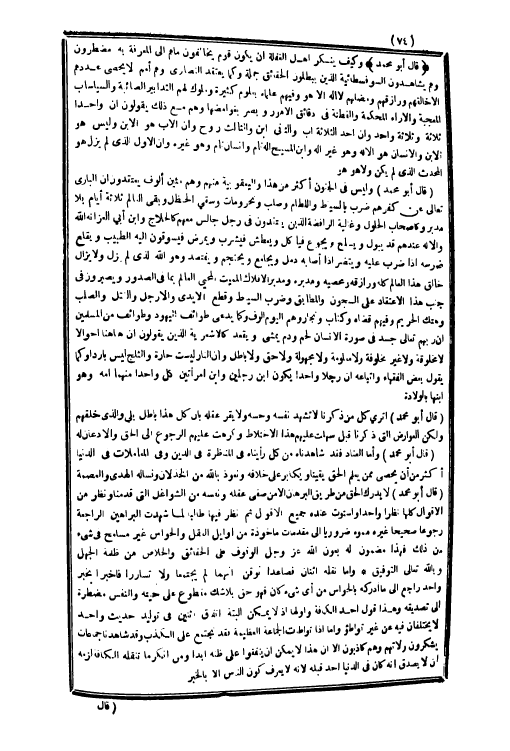 (٧٤)
﴿ قال أبو محمد ﴾ وكيف ينكر أهل الغفلة ان يكون قوم يخالفون ماهم الى المعرفة به مضطرون
وهم يشاهدون السوفسطائية الذين يبطلون الحقائق جملة وكما يعتقد النصارى وهم أمم لا يحصى عددهم
الا خالقهم ورازقهم ومضلهم لا اله الا هو وفيهم علماء بعلوم كثيرة وملوك لهم التدابير الصائبة والسياسات
المعجبة والآراء المحكمة والفطنة فى دقائق الامور وبصر بغوامضها وهم مع ذلك يقولون ان واحدا
ثلاثة وثلاثة واحد وان احد الثلاثة اب والثانى ابن والثالث روح وان الاب هو الابن وليس هو
الابن والانسان هو الاله وهو غير اله وابن المسيح اله تام وانسان تام وهو غيره وان الاول الذى لم يزل هو
المحدث الذى لم يكن ولا هو هو
( قال أبو محمد ) وليس فى الجنون أكثر من هذا واليعقوبية منهم وهم مئين ألوف يعتقدون ان البارى
تعالى عن كفرهم ضرب بالسياط واللطام وصلب ونحر ومات وسقى الحنظل وبقى العالم ثلاثة أيام بلا
مدبر وكاصحاب الحلول وغالية الرافضة الذين يعتقدون فى رجل جالس معهم كالحلاج وابن أبى العز انه الله
والاله عندهم قد يبول ويسلح ويجوع فيأكل ويعطش فيشرب ويمرض فيسوقون اليه الطبيب ويقلع
ضرسه اذا ضرب عليه ويتضرر اذا أصابه دمل ويجامع ويحتجم ويفتصد وهو الله الذى لم يزل ولا يزال
خالق هذا العالم كله ورازقه ومحصيه ومدبره ومدبر الافلاك المميت المحيى العالم بما فى الصدور ويصبرون فى
جنب هذا الاعتقاد على السجون والمطابق وضرب السياط وقطع الايدى والارجل والقتل والصلب
وهتك الحريم وفيهم قضاة وكتاب وتجار وهم اليوم ألوف وكما يدعى طوائف اليهود وطوائف من المسلمين
ان ربهم تعالى جسد فى صورة الانسان لحم ودم يمشى ويقعد كالاشعرية الذين يقولون ان هاهنا احوالا
لا مخلوقة ولا غير مخلوقة ولا معلومة ولا مجهولة ولا حق ولا باطل وان النار ليست حارة والثلج ليس باردا وكما
يقول بعض الفقهاء واتباعه ان رجلا واحدا يكون ابن رجلين وابن امرأتين كل واحدا منهما امه وهو
ابنها بالولادة
( قال أبو محمد ) اترى كل من ذكرنا لا تشهد نفسه وحسه ولا يقر عقله بان كل هذا باطل بلى والذى خلقهم
ولكن العوارض التى ذكرنا قبل سهلت عليهم هذا الاختلاط وكرهت عليهم الرجوع الى الحق والاذعان له
( قال أبو محمد ) وأما العناد فقد شاهدناه من كل رأيناه فى المناظرة فى الدين وفى المعاملات فى الدنيا
أكثر من أن يحصى ممن يعلم الحق يقينا ويكابر على خلافه ونعوذ بالله من الخذلان ونسأله الهدى والعصمة
( قال أبو محمد ) لا يدرك الحق من طريق البرهان الا من صفى عقله ونفسه من الشواغل التى قدمنا ونظر من
الاقوال كلها نظرا واحدا واستوت عنده جميع الاقوال ثم نظر فيها طالبا لما شهدت البراهين الراجعة
رجوعا صحيحا غير مموه ضروريا الى مقدمات مأخوذة من اوائل العقل والحواس غير مسامح فى شىء
من ذلك فهذا مضمون له بعون الله عز وجل الوقوف على الحقائق والخلاص من ظلمة الجهل
وبالله تعالى التوفيق * واما نقله اثنان فصاعدا نوقن انهما لم يجتمعا ولا تساررا فأخبرا بخبر
واحد راجع الى ما ادركه بالحواس من أى شىء كان فهو حق بلا شك مقطوع على حينه والنفس مضطرة
الى تصديقه وهذا قول احد الكافة واولها اذ لا يمكن البتة اتفاق اثنين فى توليد حديث واحد
لا يختلفان فيه عن غير تواطؤ واما اذا تواطأت الجماعة العظيمة فقد تجتمع على الكذب وقد شاهدنا جماعات
يشكرون ولاتهم وهم كاذبون الا ان هذا لا يمكن ان يتفقوا على ظنه ابدا ومن انكر ما تنقله الكافة لزمه
ان لا يصدق انه كان فى الدنيا احد قبله لانه لا يعرف كون الناس الا بالخبر
( قال